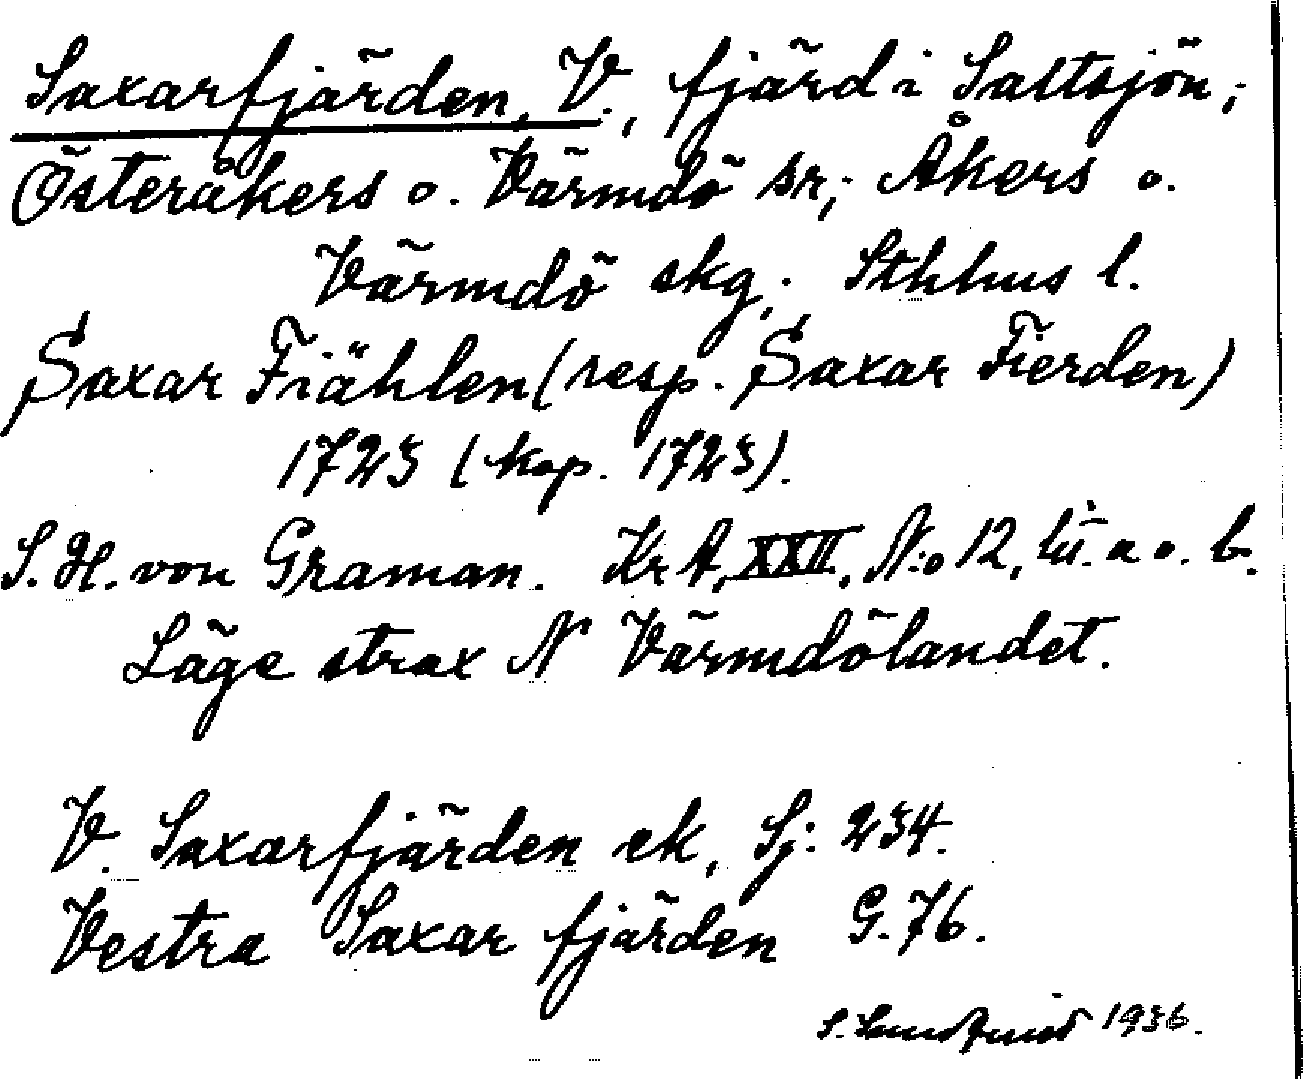 Saxarfjärden, V., fjärd i Saltsjön;
Österåkers o. Värmdö sr; Åkers o.
Värmdö skg; Sthlms l.
Saxar Fiählen (resp. Saxar Fierden)
1723 (kop. 1723).
S. H. von Graman. KrA, XXII, N:o 12, litt. a o. b.
Läge strax N Värmdölandet.
V. Saxarfjärden ek, Sj: 234.
Vestra Saxar fjärden G. 76.
S. 1936.